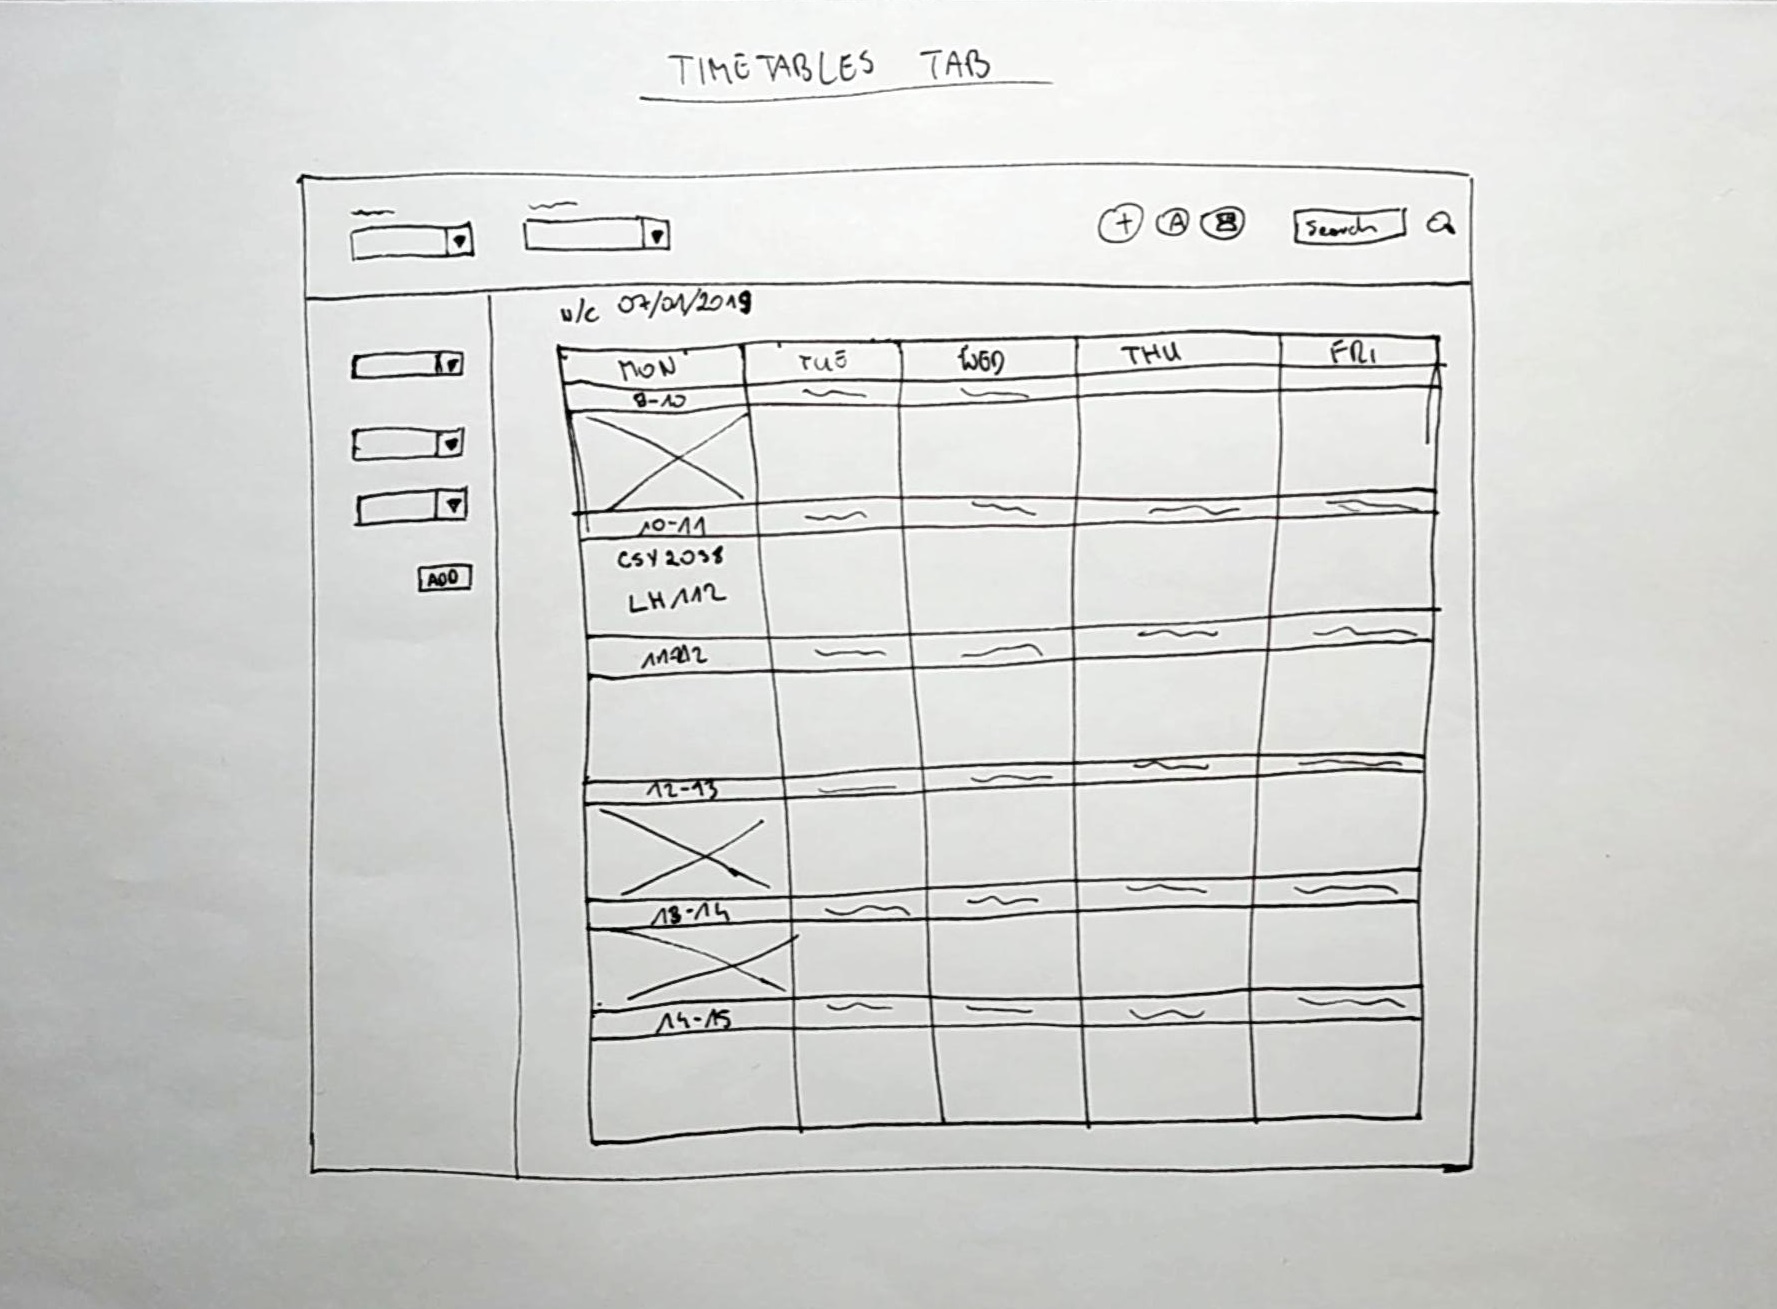 TIMETABLES TAB
+ A
Search
w/c 07/01/2019
MON TUE WED THU FRI
8-10
10-11
CSY2038
LH112
11-12
ADD
12-13
13-14
14-15